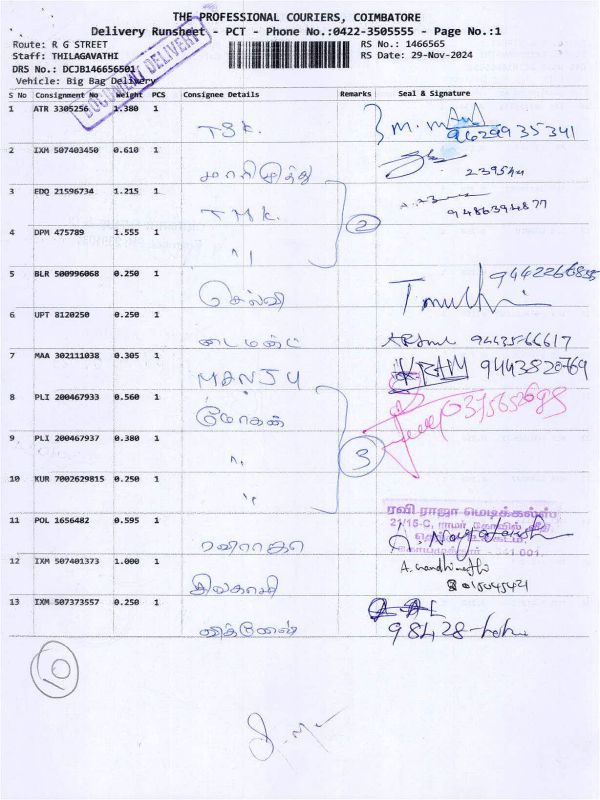 THE PROFESSIONAL COURIERS, COIMBATORE
Delivery Runsheet - PCT - Phone No.:0422-3505555 - Page No.:1
Route: R G STREET RS No.: 1466565
Staff: THILAGAVATHI RS Date: 29-Nov-2024
DRS No.: DCJB146656501
Vehicle: Big Bag Delivery
DOCUMENT DELIVERY
S No Consignment No Weight PCS Consignee Details Remarks Seal & Signature
1 ATR 3305256 1.380 1 TSK. 9629935341
2 IXM 507403450 0.610 1 மாரிமுத்து
3 EDQ 21596734 1.215 1 TMK. 2 9486394877
4 DPM 475789 1.555 1 "
5 BLR 500996068 0.250 1 செல்வி
6 UPT 8120250 0.250 1 டைமண்ட் 9443566617
7 MAA 302111038 0.305 1 MANJU 9443820769
8 PLI 200467933 0.560 1 மோகன்
9 PLI 200467937 0.380 1 " 3
10 KUR 7002629815 0.250 1 "
ரவி ராஜா மெடிக்கல்ஸ்
21/15-C, ராமர் கோவில் வீதி
11 POL 1656482 0.595 1
12 IXM 507401373 1.000 1
13 IXM 507373557 0.250 1
10